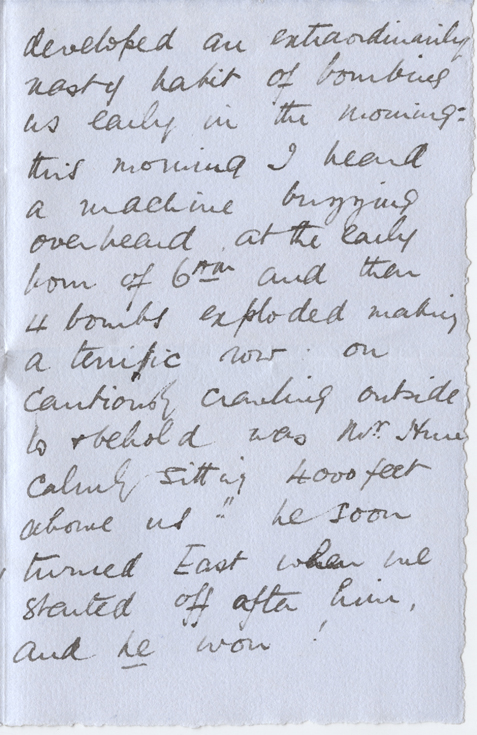 developed an extraordinarily
nasty habit of bombing
us early in the morning:
this morning I heard
a machine buzzing
overheard at the early
hour of 6 AM and then
4 bombs exploded making
a terrific row: on
cautiously crawling outside
lo & behold was Mr. Hun
calmly sitting 4000 feet
above us" he soon
turned East when we
started off after him,
and he won!